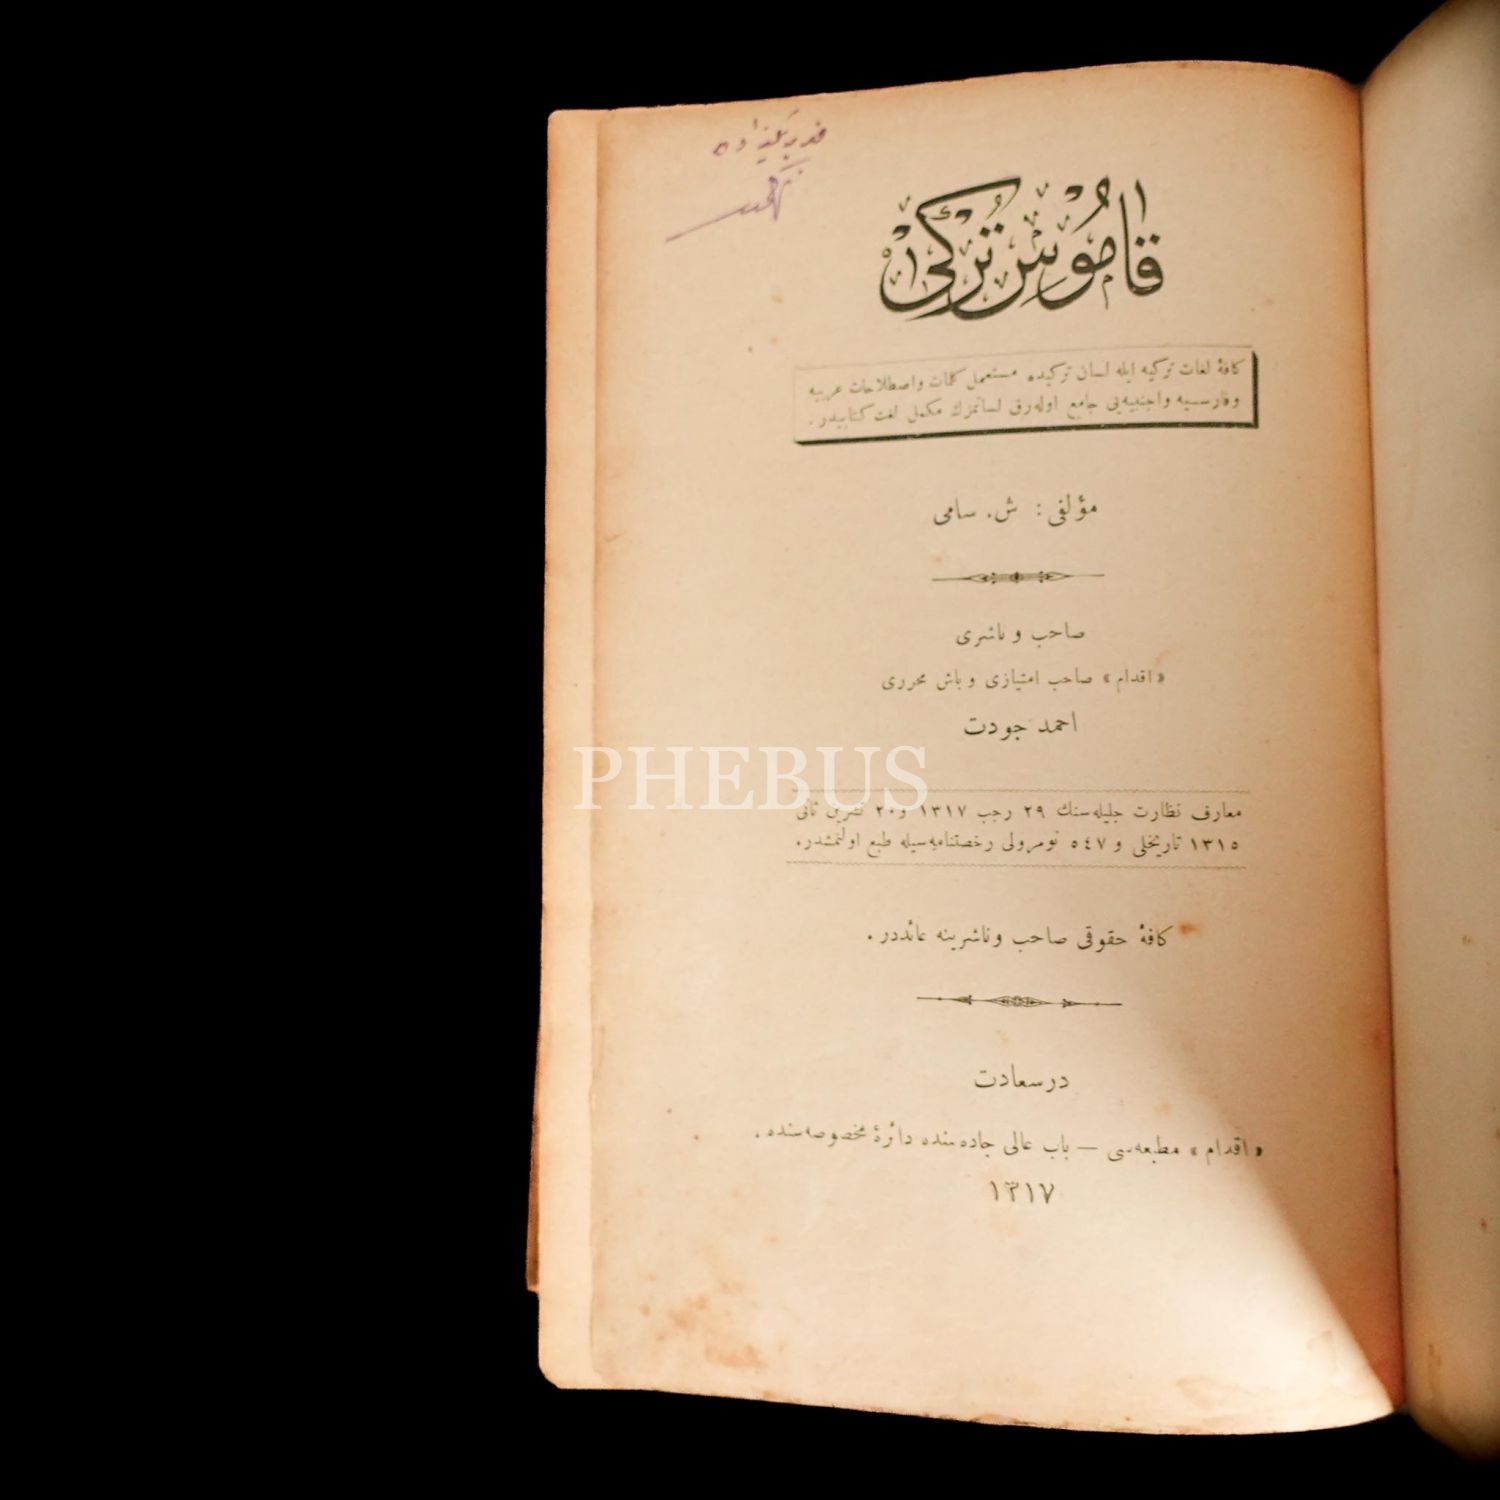 قاموس تركی
كافهٔ لغات تركیه ایله لسان تركیده مستعمل كلمات و اصطلاحات عربیه
و فارسیه و اجنبیه‌یی جامع اوله‌رق لسانمزك مكمل لغت كتابیدر.
مؤلفی: ش. سامی
صاحب و ناشری
«اقدام» صاحب امتیازی و باش محرری
احمد جودت
PHEBUS
معارف نظارت جلیله‌سنك ٢٩ رجب ١٣١٧ و ٢٠ تشرین ثانی
١٣١٥ تاریخلی و ٥٤٧ نومرولی رخصتنامه‌سیله طبع اولنمشدر.
كافهٔ حقوقی صاحب و ناشرینه عائددر.
درسعادت
«اقدام» مطبعه‌سی — باب عالی جاده‌سنده دائرهٔ مخصوصه‌سنده.
١٣١٧